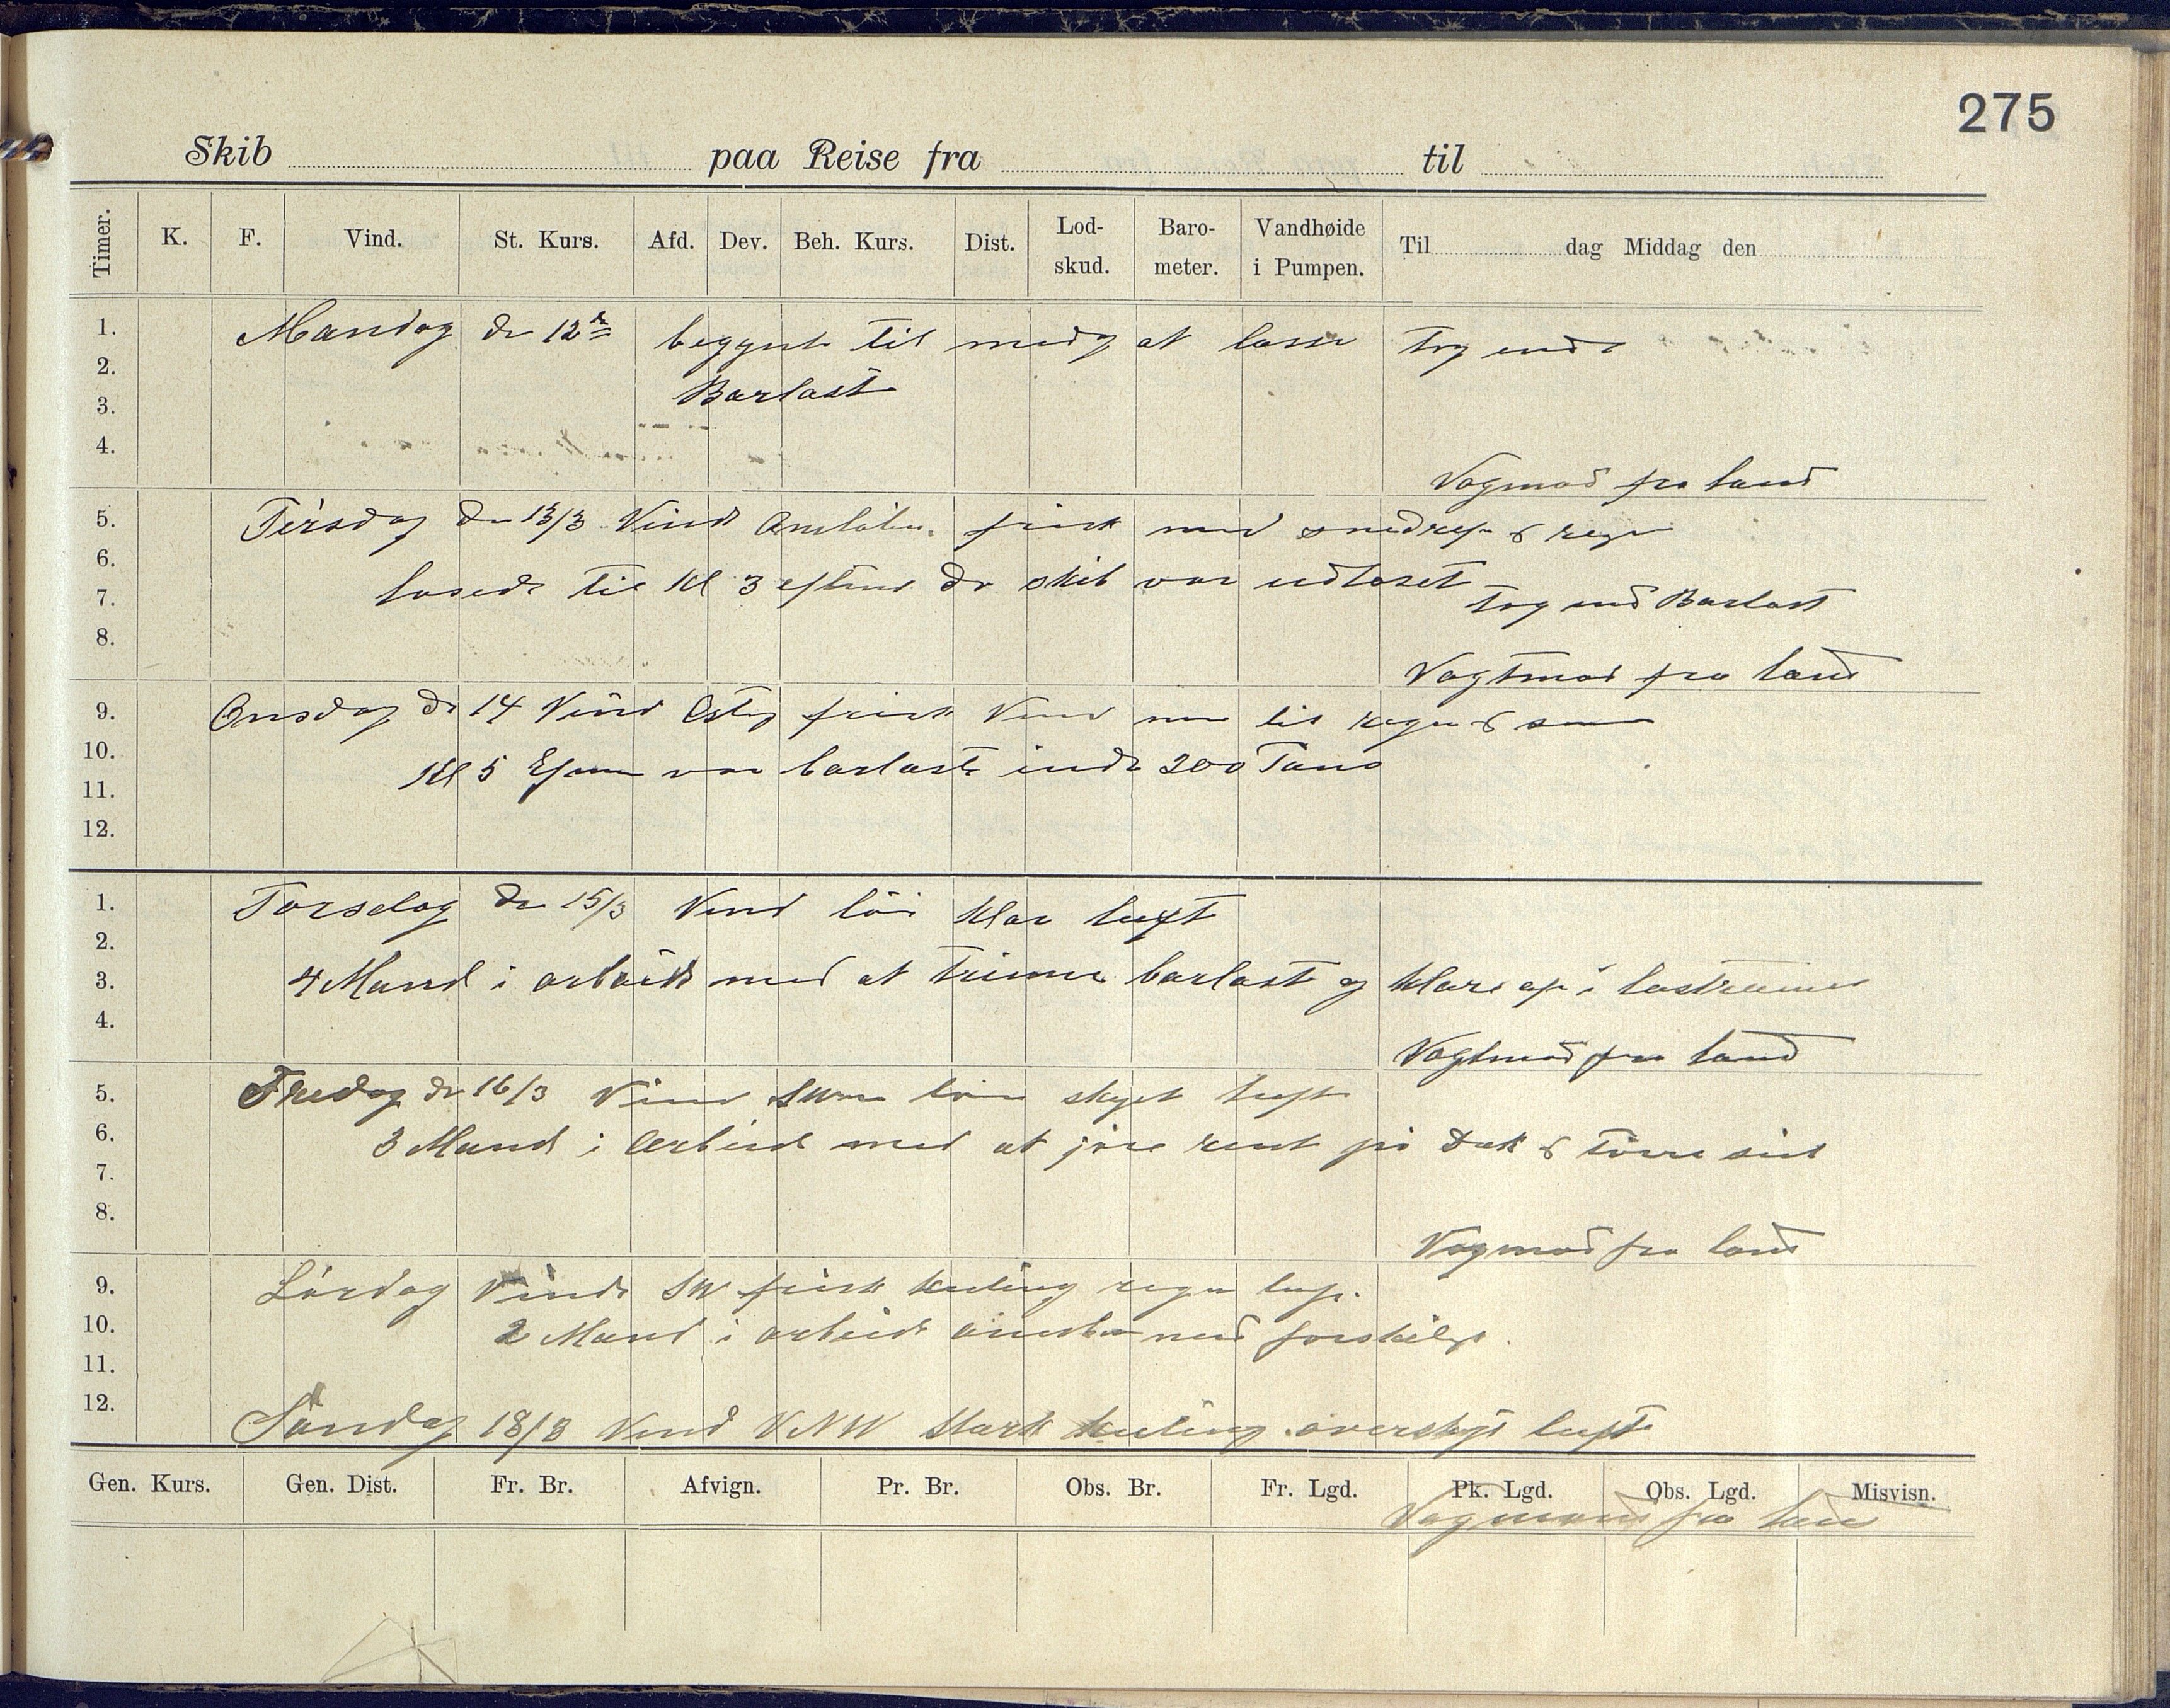 275
Skib paa Reise fra til
Timer. K. F. Vind. St. Kurs. Afd. Dev. Beh. Kurs. Dist. Lod-skud. Baro-meter. Vandhøide i Pumpen. Til dag Middag den
1.
2.
3.
4.
5.
6.
7.
8.
9.
10.
11.
12.
Mandag d 12 begynt til at losse tog inde
Barlast
Vagmad fra land
Tirsdag den 13/3 Vind frisk med & regn
losede til Kl 3 skib var udloset
tog ind Barlast
Vagtmad fra land
Onsdag d 14 Vind Østlig frisk Vind regn &
Kl 5 var barlast inde 200 Tons
1.
2.
3.
4.
5.
6.
7.
8.
9.
10.
11.
12.
Torsdag den 15/3 Vind löi klar luft
4 Mand i arbeide med at trimme barlast og klare op i lastrummet
Vagtmad fra land
Fredag d 16/3 Vind skyet luft
3 Mand i Arbeide med at jöre rent på Dæk &
Vagmad fra land
Lördag Vind SW frisk kuling regn luft.
2 Mand i arbeide med forskelige.
Söndag 18/3 Vind VNW Stærk kuling overskyt luft
Gen. Kurs. Gen. Dist. Fr. Br. Afvign. Pr. Br. Obs. Br. Fr. Lgd. Pk. Lgd. Obs. Lgd. Misvisn.
Vagmand fra land